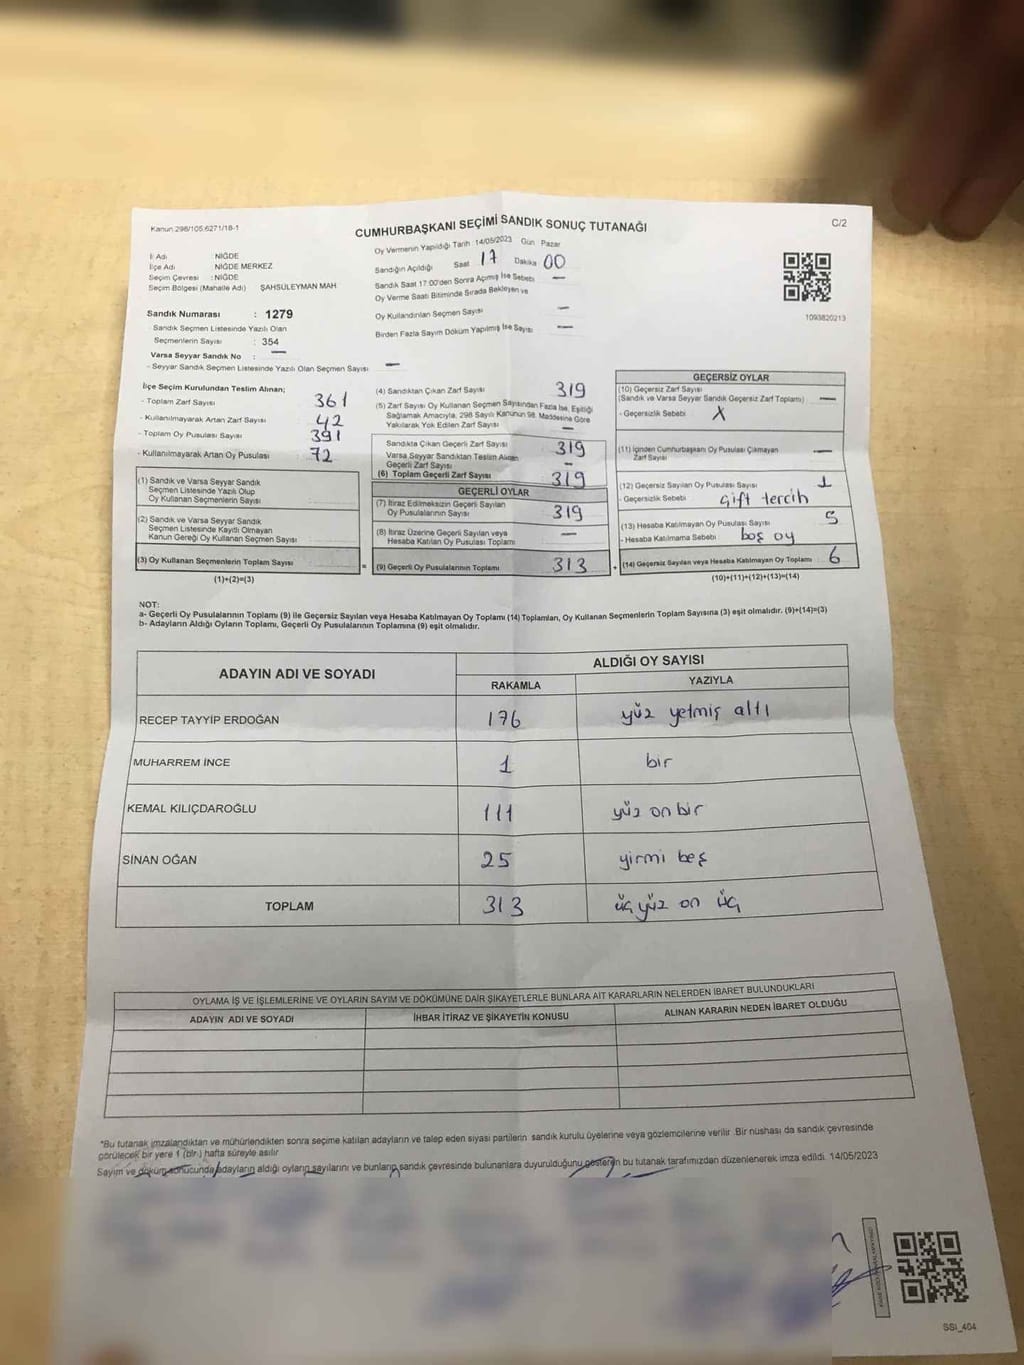 Kanun 298/105,6271/18-1
CUMHURBAŞKANI SEÇİMİ SANDIK SONUÇ TUTANAĞI
C/2
İl Adı : NİĞDE
İlçe Adı : NİĞDE MERKEZ
Seçim Çevresi : NİĞDE
Seçim Bölgesi (Mahalle Adı) ŞAHSÜLEYMAN MAH
Sandık Numarası : 1279
Sandık Seçmen Listesinde Yazılı Olan
Seçmenlerin Sayısı : 354
Varsa Seyyar Sandık No : —
- Seyyar Sandık Seçmen Listesinde Yazılı Olan Seçmen Sayısı —
Oy Vermenin Yapıldığı Tarih 14/05/2023 Gün Pazar
Sandığın Açıldığı Saat 17 Dakika 00
Sandık Saat 17:00'den Sonra Açımış İse Sebebi —
Oy Verme Saati Bitiminde Sırada Bekleyen ve
Oy Kullandırılan Seçmen Sayısı —
Birden Fazla Sayım Döküm Yapılmış İse Sayısı —
1093820213
İlçe Seçim Kurulundan Teslim Alınan;
- Toplam Zarf Sayısı 361
- Kullanılmayarak Artan Zarf Sayısı 42
- Toplam Oy Pusulası Sayısı 391
- Kullanılmayarak Artan Oy Pusulası 72
(1) Sandık ve Varsa Seyyar Sandık
Seçmen Listesinde Yazılı Olup
Oy Kullanan Seçmenlerin Sayısı
(2) Sandık ve Varsa Seyyar Sandık
Seçmen Listesinde Kayıtlı Olmayan
Kanun Gereği Oy Kullanan Seçmen Sayısı
(3) Oy Kullanan Seçmenlerin Toplam Sayısı
(1)+(2)=(3)
(4) Sandıktan Çıkan Zarf Sayısı 319
(5) Zarf Sayısı Oy Kullanan Seçmen Sayısından Fazla İse, Eşitliği
Sağlamak Amacıyla, 298 Sayılı Kanunun 98. Maddesine Göre
Yakılarak Yok Edilen Zarf Sayısı —
Sandıkta Çıkan Geçerli Zarf Sayısı 319
Varsa Seyyar Sandıktan Teslim Alınan
Geçerli Zarf Sayısı —
(6) Toplam Geçerli Zarf Sayısı 319
GEÇERLİ OYLAR
(7) İtiraz Edilmeksizin Geçerli Sayılan
Oy Pusulalarının Sayısı 319
(8) İtiraz Üzerine Geçerli Sayılan veya
Hesaba Katılan Oy Pusulası Toplamı —
= (9) Geçerli Oy Pusulalarının Toplamı 313
GEÇERSİZ OYLAR
(10) Geçersiz Zarf Sayısı
(Sandık ve Varsa Seyyar Sandık Geçersiz Zarf Toplamı) —
- Geçersizlik Sebebi X
(11) İçinden Cumhurbaşkanı Oy Pusulası Çıkmayan
Zarf Sayısı —
(12) Geçersiz Sayılan Oy Pusulası Sayısı 1
- Geçersizlik Sebebi çift tercih
(13) Hesaba Katılmayan Oy Pusulası Sayısı 5
- Hesaba Katılmama Sebebi boş oy
+ (14) Geçersiz Sayılan veya Hesaba Katılmayan Oy Toplamı 6
(10)+(11)+(12)+(13)=(14)
NOT:
a- Geçerli Oy Pusulalarının Toplamı (9) ile Geçersiz Sayılan veya Hesaba Katılmayan Oy Toplamı (14) Toplamları, Oy Kullanan Seçmenlerin Toplam Sayısına (3) eşit olmalıdır. (9)+(14)=(3)
b- Adayların Aldığı Oyların Toplamı, Geçerli Oy Pusulalarının Toplamına (9) eşit olmalıdır.
ADAYIN ADI VE SOYADI ALDIĞI OY SAYISI
RAKAMLA YAZIYLA
RECEP TAYYİP ERDOĞAN 176 yüz yetmiş altı
MUHARREM İNCE 1 bir
KEMAL KILIÇDAROĞLU 111 yüz on bir
SİNAN OĞAN 25 yirmi beş
TOPLAM 313 üç yüz on üç
OYLAMA İŞ VE İŞLEMLERİNE VE OYLARIN SAYIM VE DÖKÜMÜNE DAİR ŞİKAYETLERLE BUNLARA AİT KARARLARIN NELERDEN İBARET BULUNDUKLARI
ADAYIN ADI VE SOYADI İHBAR İTİRAZ VE ŞİKAYETİN KONUSU ALINAN KARARIN NEDEN İBARET OLDUĞU
*Bu tutanak imzalandıktan ve mühürlendikten sonra seçime katılan adayların ve talep eden siyasi partilerin sandık kurulu üyelerine veya gözlemcilerine verilir. Bir nüshası da sandık çevresinde
görülecek bir yere 1 (bir) hafta süreyle asılır
Sayım ve döküm sonucunda adayların aldığı oyların sayılarını ve bunların sandık çevresinde bulunanlara duyurulduğunu gösteren bu tutanak tarafımızdan düzenlenerek imza edildi. 14/05/2023
SSI_404